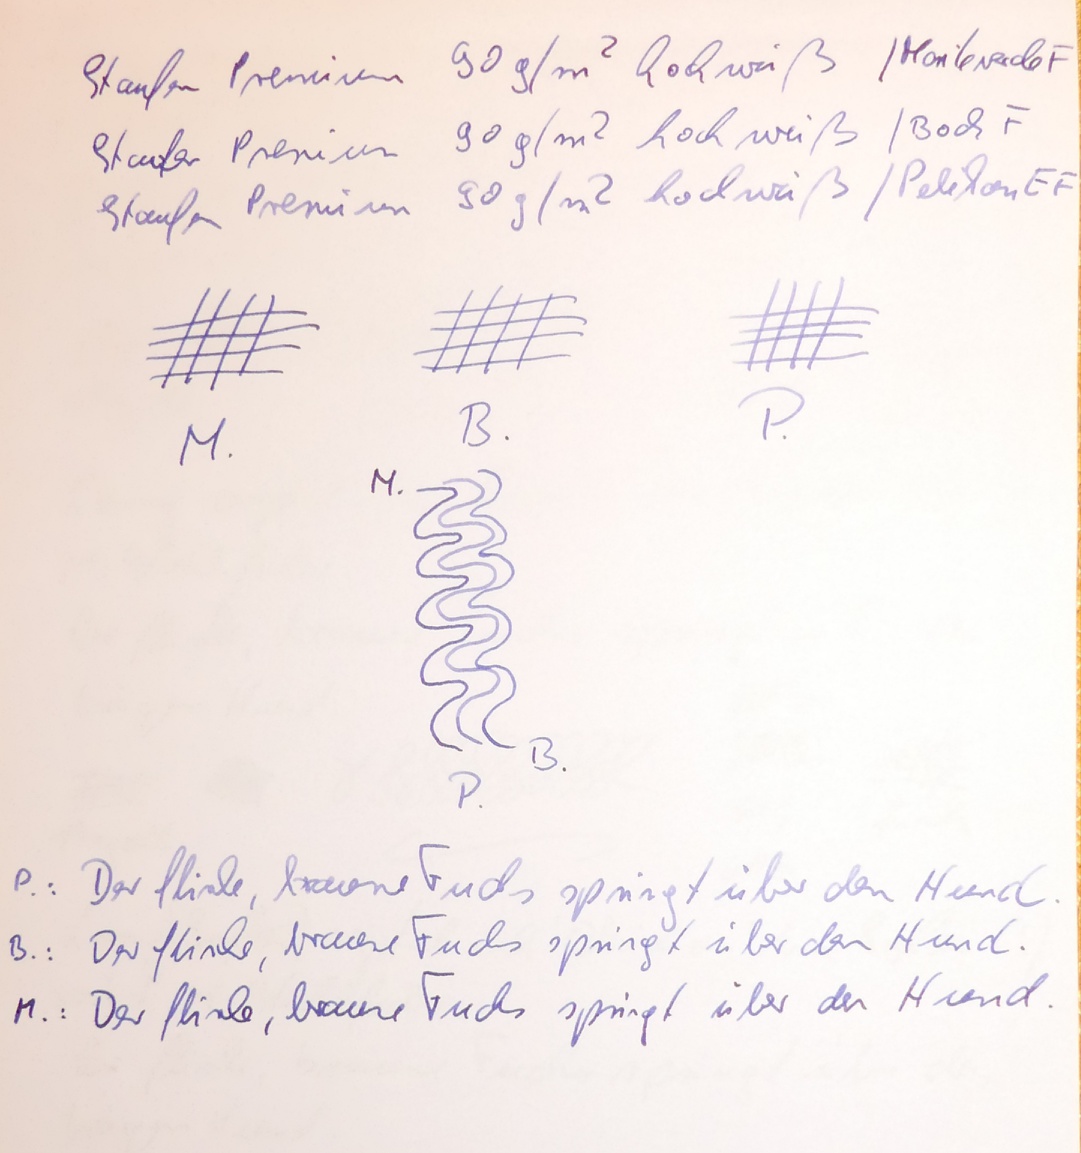 Staufen Premium 90 g/m² hochweiß /Monteverde F
Staufen Premium 90 g/m² hochweiß /Bock F
Staufen Premium 90 g/m² hochweiß /Pelikan EF
M. B. P.
M.
B.
P.
P.: Der flinke, braune Fuchs springt über den Hund.
B.: Der flinke, braune Fuchs springt über den Hund.
M.: Der flinke, braune Fuchs springt über den Hund.